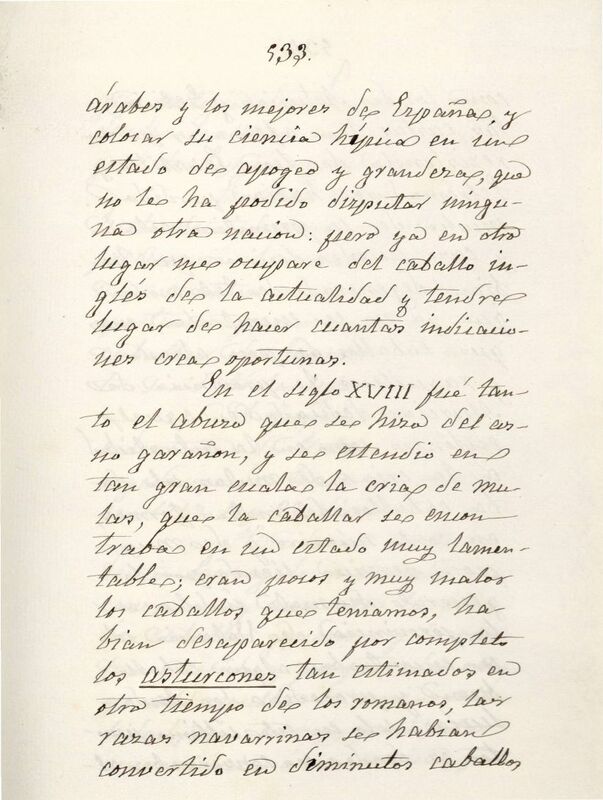 533.
árabes y los mejores de España, y
colocar su ciencia hípica en un
estado de apogeo y grandeza, que
no le ha podido disputar ningu-
na otra nacion: pero ya en otro
lugar me ocupare del caballo in-
glés de la actualidad y tendre
lugar de hacer cuantas indicacio-
nes crea oportunas.
En el siglo XVIII fué tan-
to el abuso que se hizo del as-
no garañon, y se estendio en
tan gran escala la cria de mu-
las, que la caballar se encon
traba en un estado muy lamen-
table; eran pocos y muy malos
los caballos que teniamos, ha
bian desaparecido por completo
los asturcones tan estimados en
otro tiempo de los romanos, las
razas navarrinas se habian
convertido en diminutos caballos